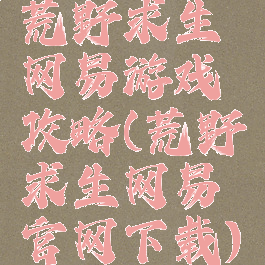 荒野求生
网易游戏
攻略(荒野
求生网易
官网下载)